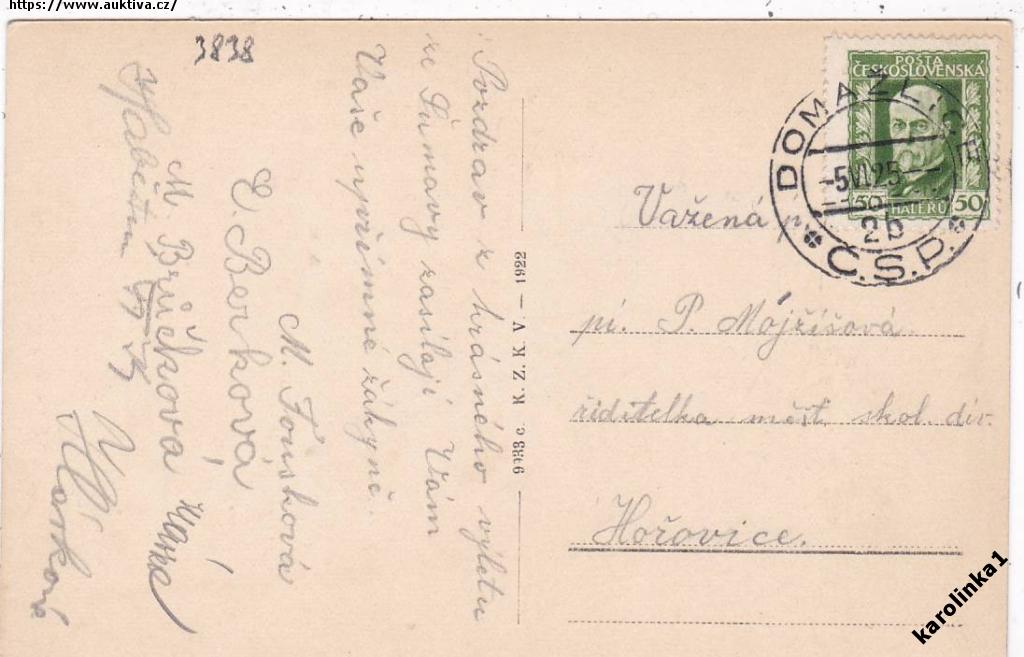 https://www.auktiva.cz/
3838
Pozdrav z krásného výletu
ze Šumavy zasílají Vám
Vaše upřímné žákyně.
M. Foušková
E. Berková
M. Brůčková
9933 c. K. Z. K. V. — 1922
POŠTA
ČESKOSLOVENSKÁ
50 HALÉŘŮ 50
DOMAŽL
-5 VI 25
2b
Č.S.P.
Vážená p
pí. P. Mojžíšová
ředitelka měšť. škol. dív.
Hořovice.
karolinka1